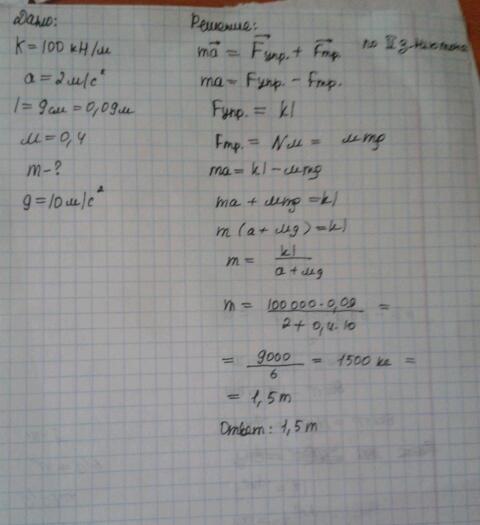 Дано:
K = 100 кН/м
a = 2 м/с²
l = 9 см = 0,09 м
м = 0,4
m - ?
g = 10 м/с²
Решение:
ma = Fупр. + Fтр. по II з. Ньютона
ma = Fупр. - Fтр.
Fупр. = kl
Fтр. = Nм = мmg
ma = kl - мmg
ma + мmg = kl
m (a + мg) = kl
m = kl / a + мg
m = 100 000 · 0,09 / 2 + 0,4 · 10 =
= 9000 / 6 = 1500 кг =
= 1,5 т
Ответ: 1,5 т